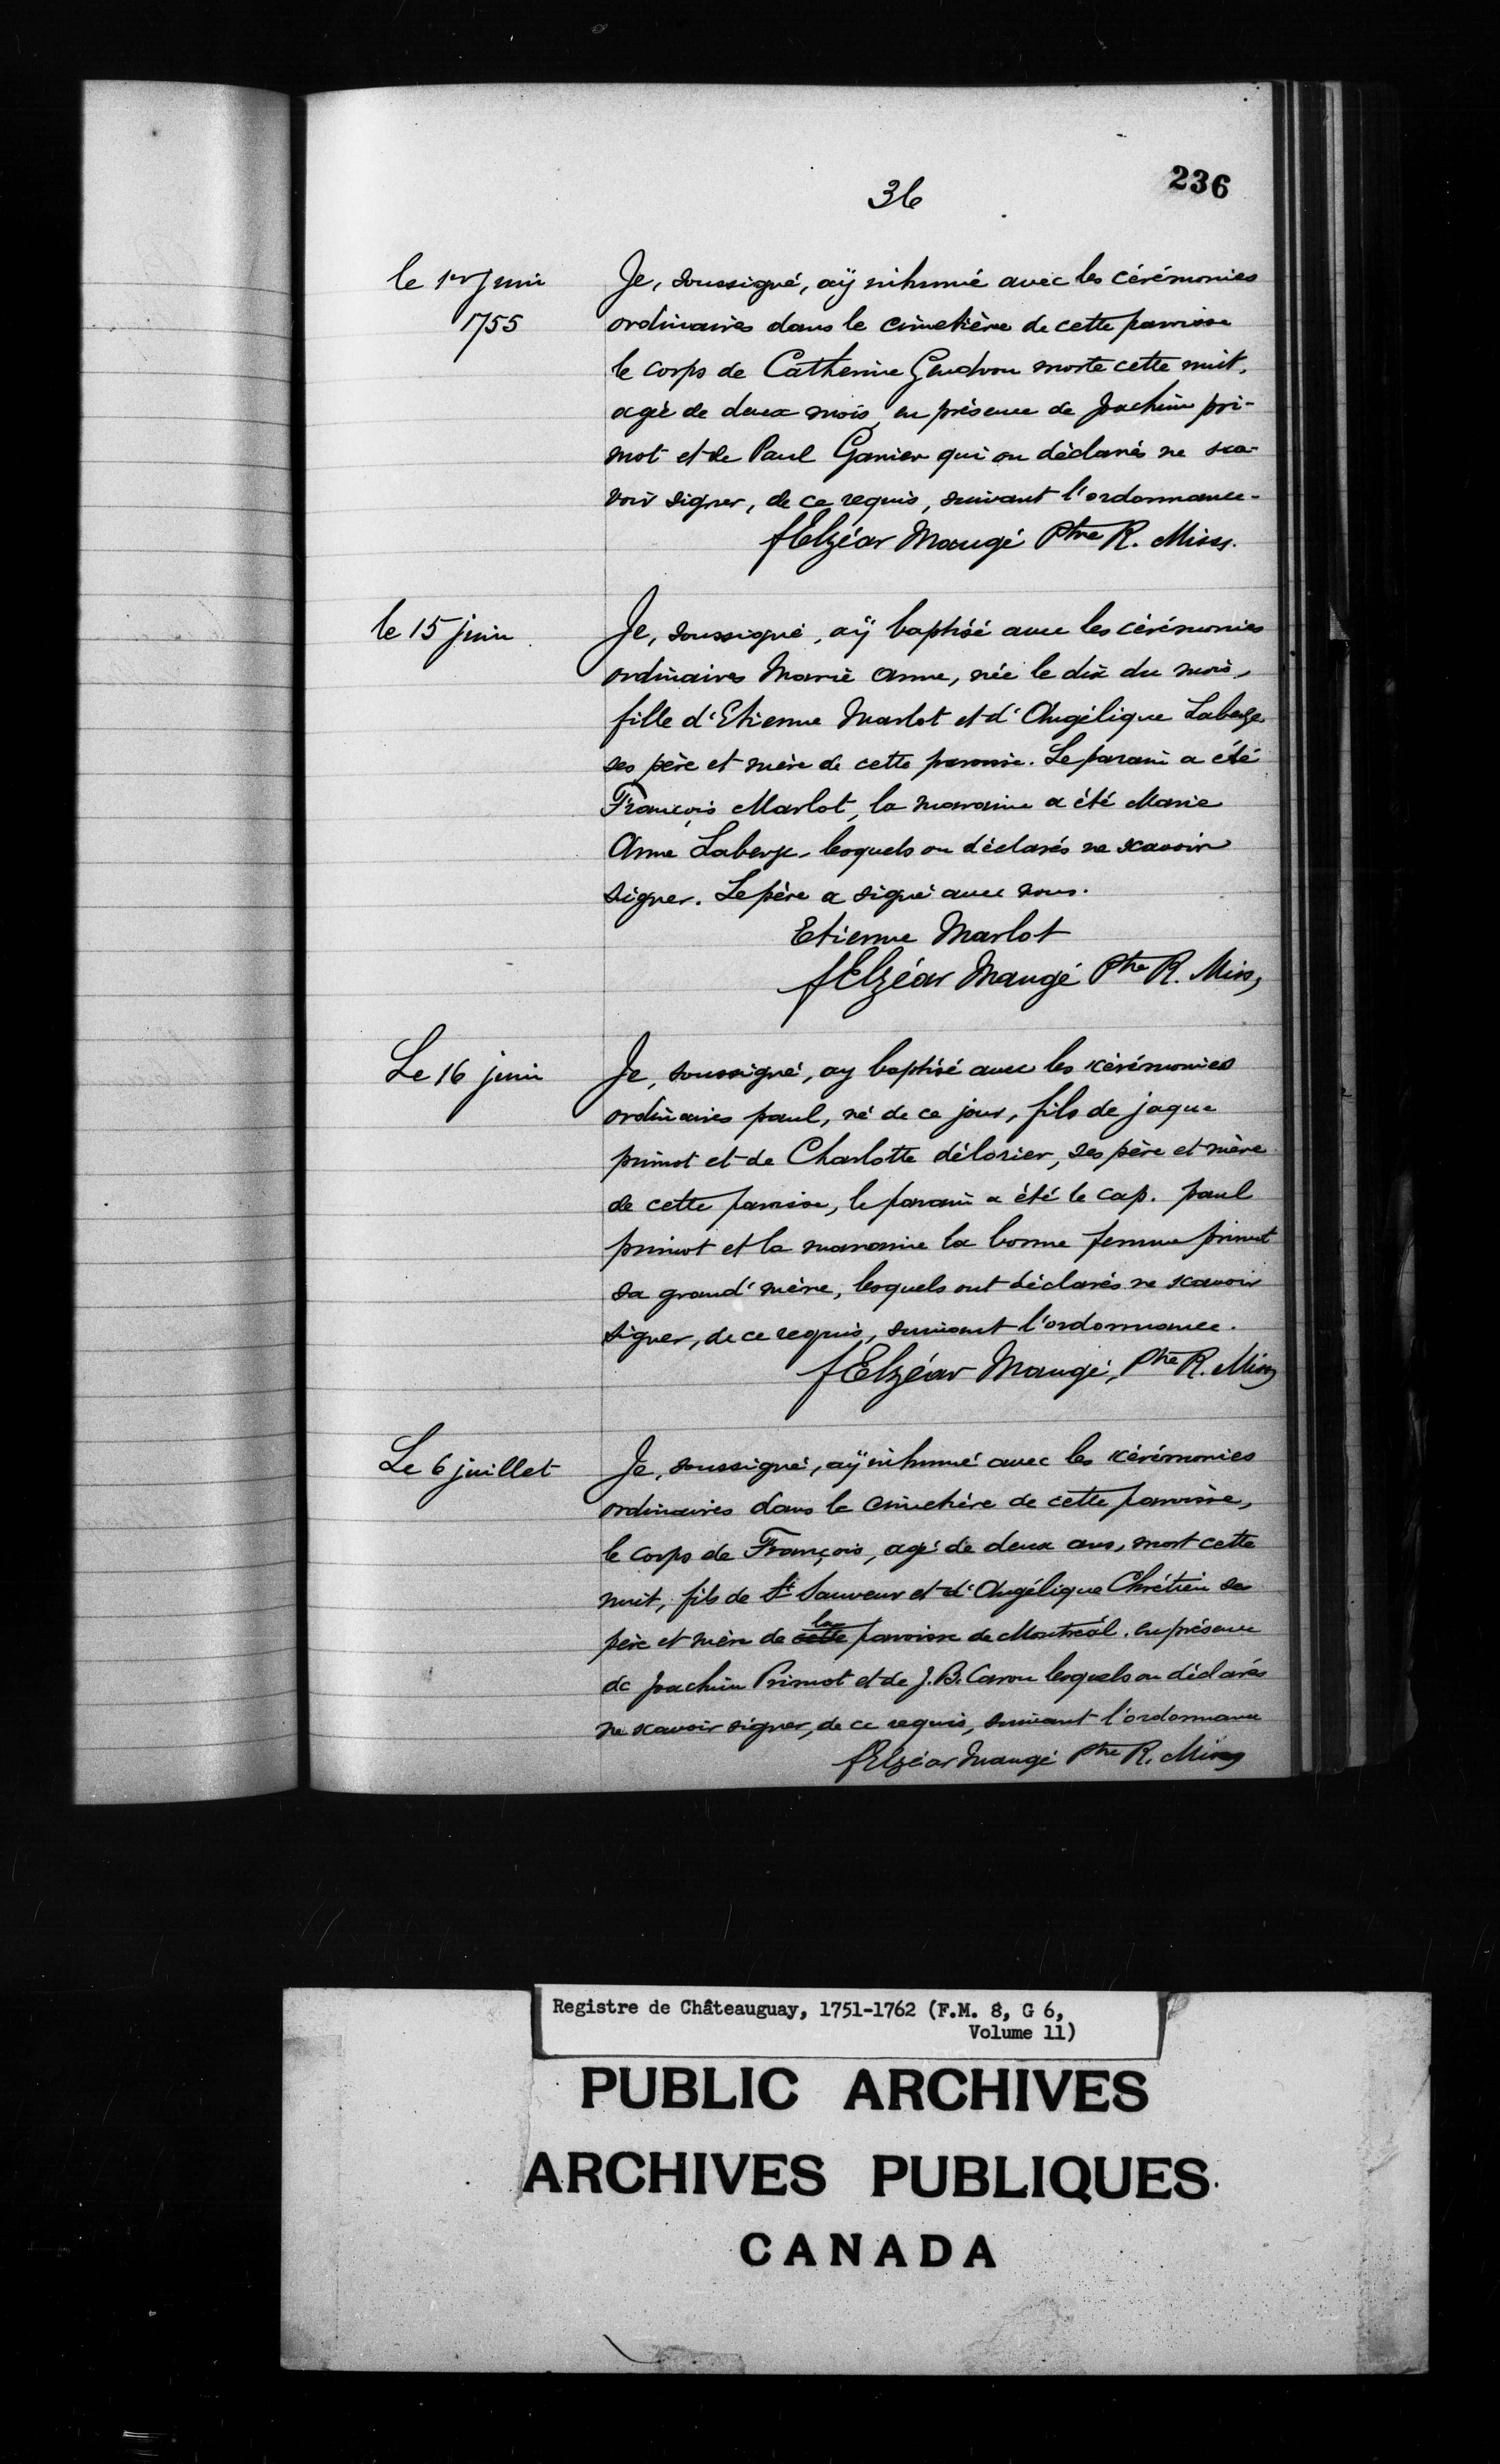 236
36
le 1er Juin
1755
Je, soussigné, aÿ inhumé avec les cérémonies
ordinaires dans le cimetière de cette paroisse
le corps de Catherine Gendron morte cette nuit,
agée de deux mois, en présence de Joachim pri-
mot et de Paul Garier qui on déclarés ne sca-
voir signer, de ce requis, suivant l'ordonnance.
f Elzéar Maugé Ptre R. Miss.
le 15 juin
Je, soussigné, aÿ baptisé avec les cérémonies
ordinaires Marie Anne, née le dix du mois,
fille d'Etienne Marlot et d'Angélique Laberge
ses père et mère de cette paroisse. Le parain a été
François Marlot, la maraine a été Marie
Anne Laberge, lesquels on déclarés ne scavoir
signer. Le père a signé avec nous.
Etienne Marlot
f Elzéar Maugé Ptre R. Miss,
Le 16 juin
Je, soussigné, ay baptisé avec les cérémonies
ordinaires paul, né de ce jour, fils de jaque
primot et de Charlotte délorier, ses père et mère
de cette paroisse, le parain a été le cap. paul
primot et la maraine la bonne femme primot
sa grand'mère, lesquels ont déclarés ne scavoir
signer, de ce requis, suivant l'ordonnance.
f Elzéar Maugé, Ptre R. Miss
Le 6 juillet
Je, soussigné, aÿ inhumé avec les cérémonies
ordinaires dans le cimetière de cette paroisse,
le corps de François, agé de deux ans, mort cette
nuit, fils de St Sauveur et d'Angélique Chrétien ses
père et mère de cette la paroisse de Montréal. en présence
de Joachim Primot et de J. B. Caron lesquels on déclarés
ne scavoir signer, de ce requis, suivant l'ordonnance
f Elzéar Maugé Ptre R. Miss
Registre de Châteauguay, 1751-1762 (F.M. 8, G 6,
Volume 11)
PUBLIC ARCHIVES
ARCHIVES PUBLIQUES
CANADA